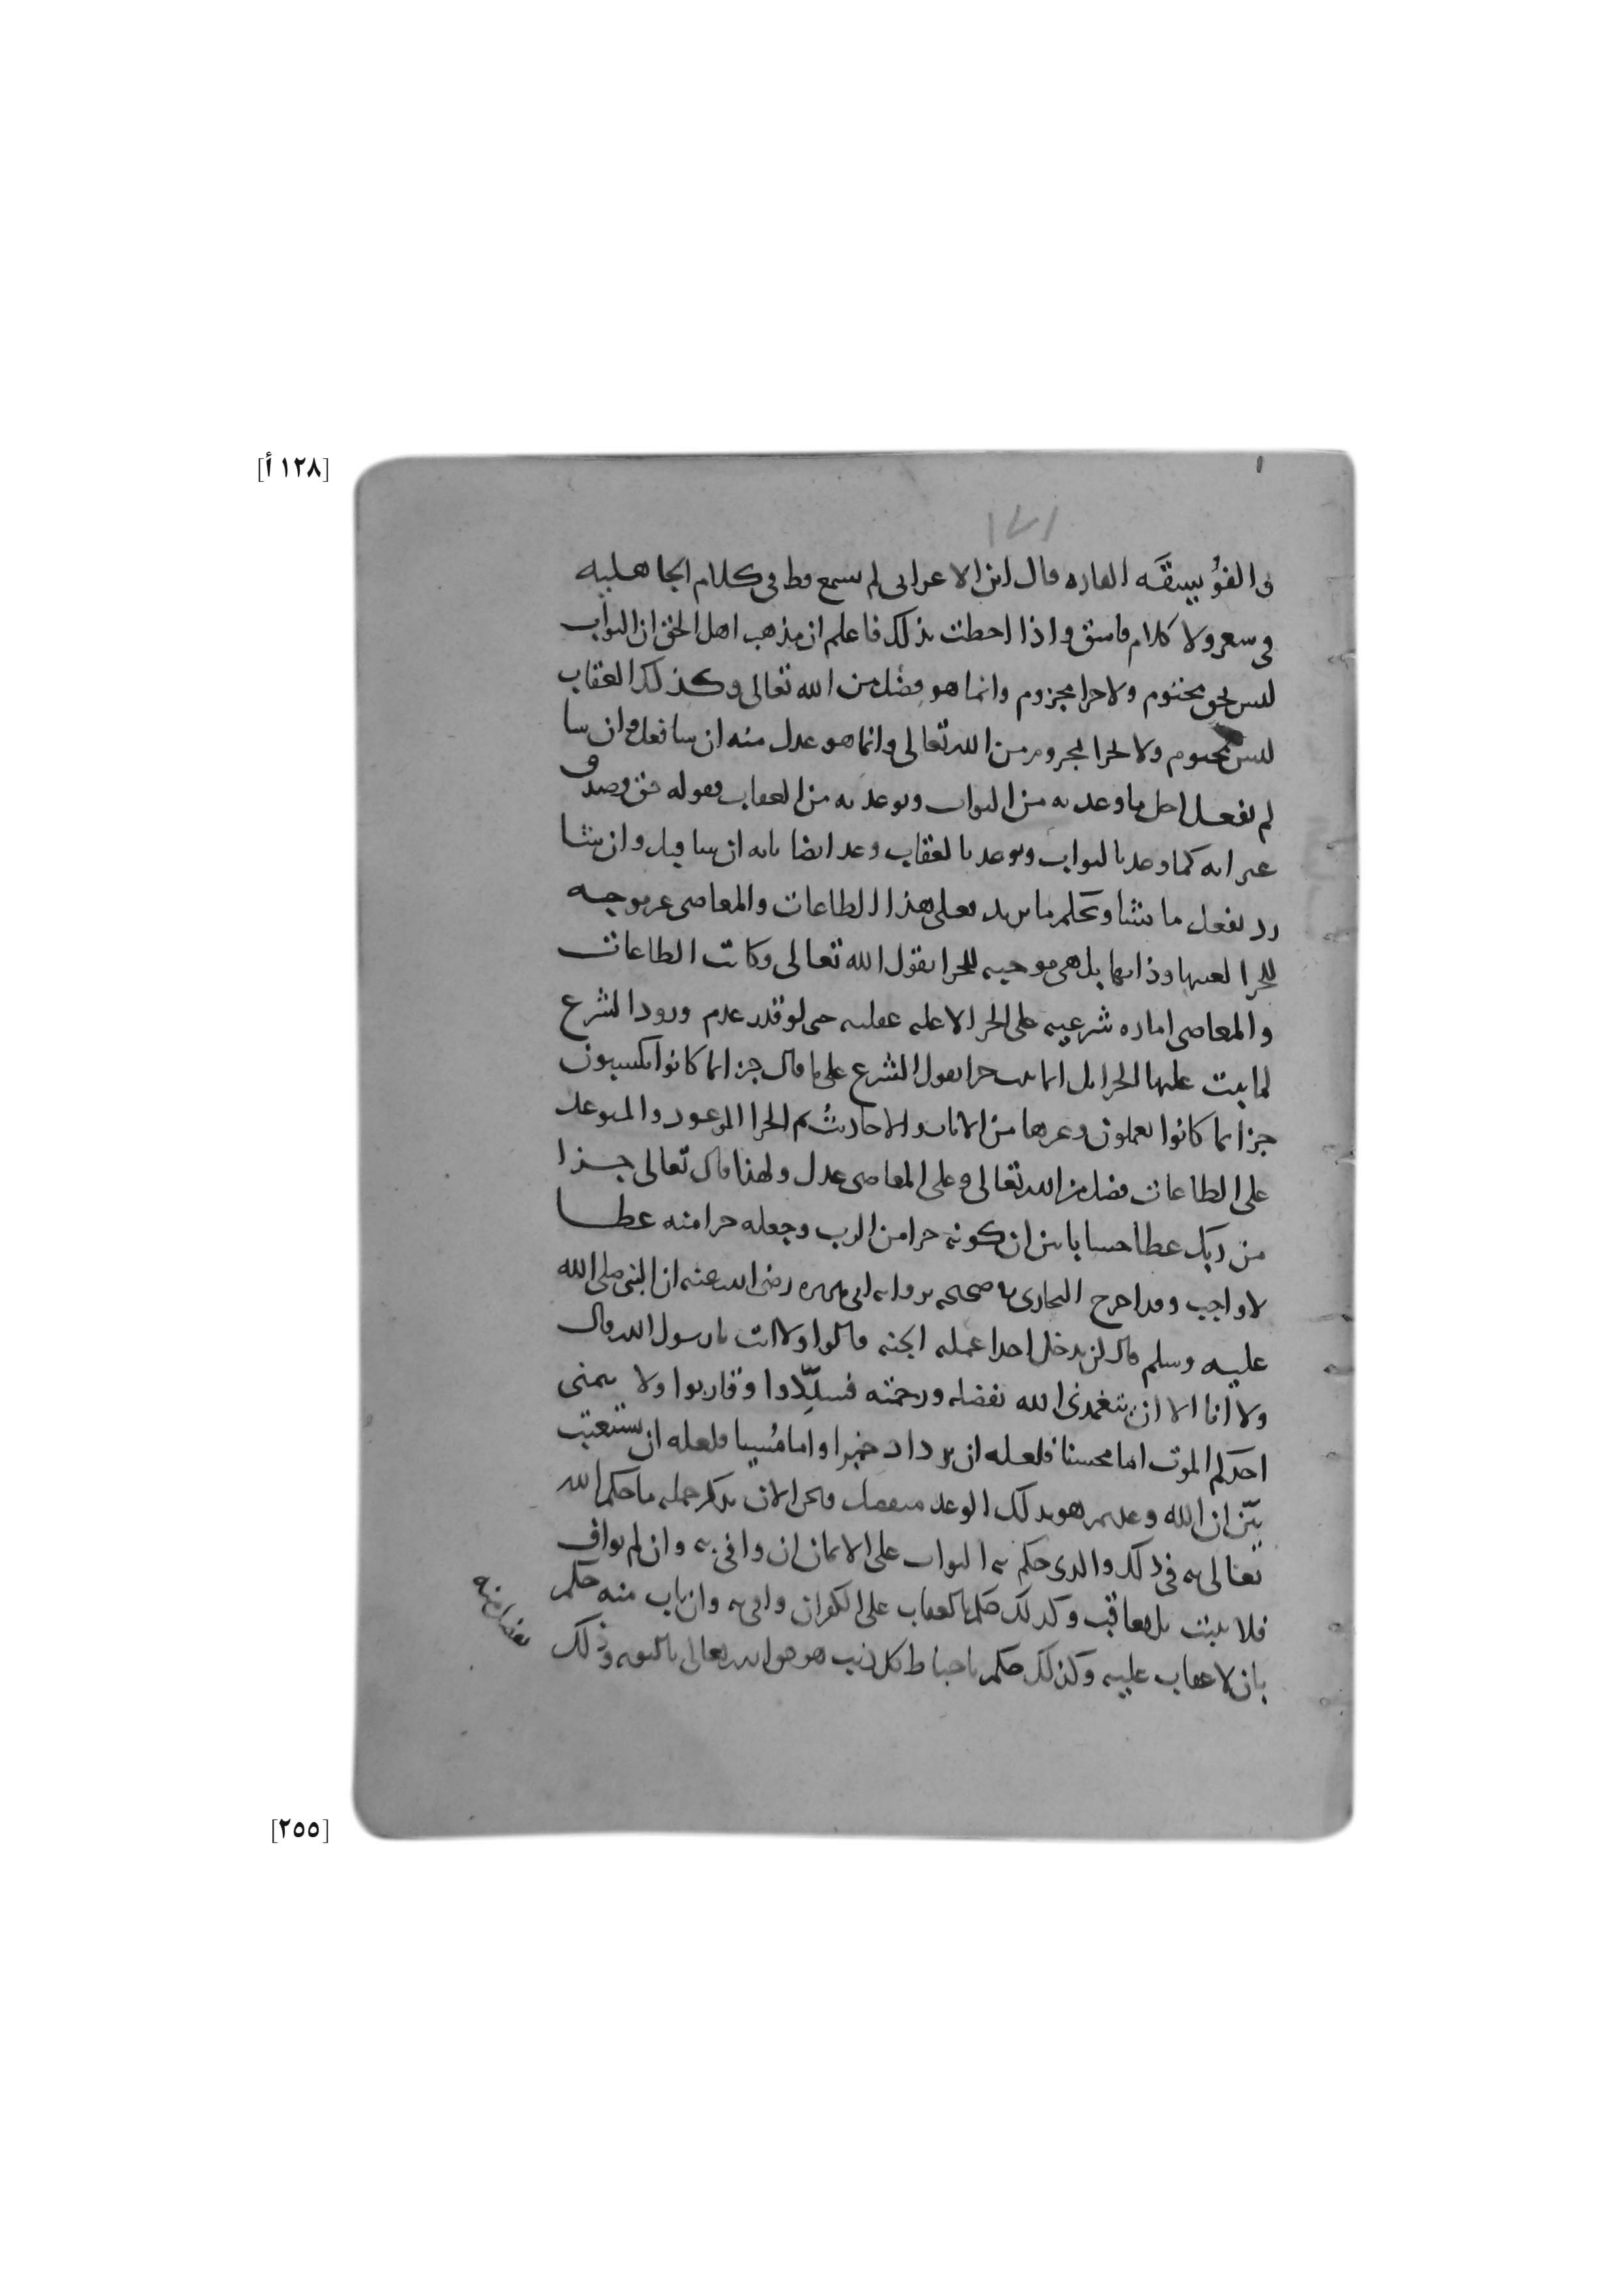 [١٢٨ أ]
١٧١
والفويسقه الفاره قال ابن الاعرابى لم يسمع قط فى كلام الجاهليه
فى شعر ولا كلام فاسق واذا احطت بذلك فاعلم ان مذهب اهل الحق ان الثواب
ليس بحق محتوم ولا جزا مجزوم وانما هو فضل من الله تعالى وكذلك العقاب
ليس بمحتوم ولا الجزا المجزوم من الله تعالى وانما هو عدل منه ان شا فعل وان شا
لم يفعل اجل ما وعد به من الثواب وتوعد به من العقاب فقوله حق وصدق
غير انه كما وعد بالثواب وتوعد بالعقاب وعد ايضا بانه ان شا قبل وان شا
رد يفعل ما يشا ويحكم ما يريد فعلى هذا الطاعات والمعاصى غير موجبه
للجزا لعينها وذاتها بل هى موجبه للجزا بقول الله تعالى وكانت الطاعات
والمعاصى اماره شرعيه على الجزا لا عله عقليه حتى لو قدر عدم ورود الشرع
لما يثبت عليها الجزا بل انما يثبت جزا بقول الشرع على ما قال جزا بما كانوا يكسبون
جزا بما كانوا يعملون وغيرها من الايات والاحاديث ثم الجزا الموعود والمتوعد
على الطاعات فضل من الله تعالى وعلى المعاصى عدل ولهذا قال تعالى جزا
من ربك عطا حسابا بين ان كونه جزا من الرب وجعله جزا منه عطا
لا واجب وقد اخرج البخارى فى صحيحه بروايه ابى هريره رضى الله عنه ان النبى صلى الله
عليه وسلم قال لن يدخل احدا عمله الجنه قالوا ولا انت يا رسول الله قال
ولا أنا الا ان يتغمدنى الله بفضله ورحمته فسدّدوا وقاربوا ولا يتمنى
احدكم الموت اما محسنا فلعله ان يزداد خيرا واما مُسيا فلعله ان يستعتب
بيّن ان الله وعدهم وهو بذلك الوعد متفضل ونحن الان نذكر جمله ما حكم الله
تعالى به فى ذلك والذى حكم به الثواب على الايمان ان وافى به وان لم يواف
فلا يثبت بل يعاقب وكذلك حكم بالعقاب على الكفر ان وافى به وان تاب منه حكم
بان لا عقاب عليه وكذلك حكم باحباط كل ذنب هو حق الله تعالى بالتوبه وذلك
تفضل منه
[٢٥٥]